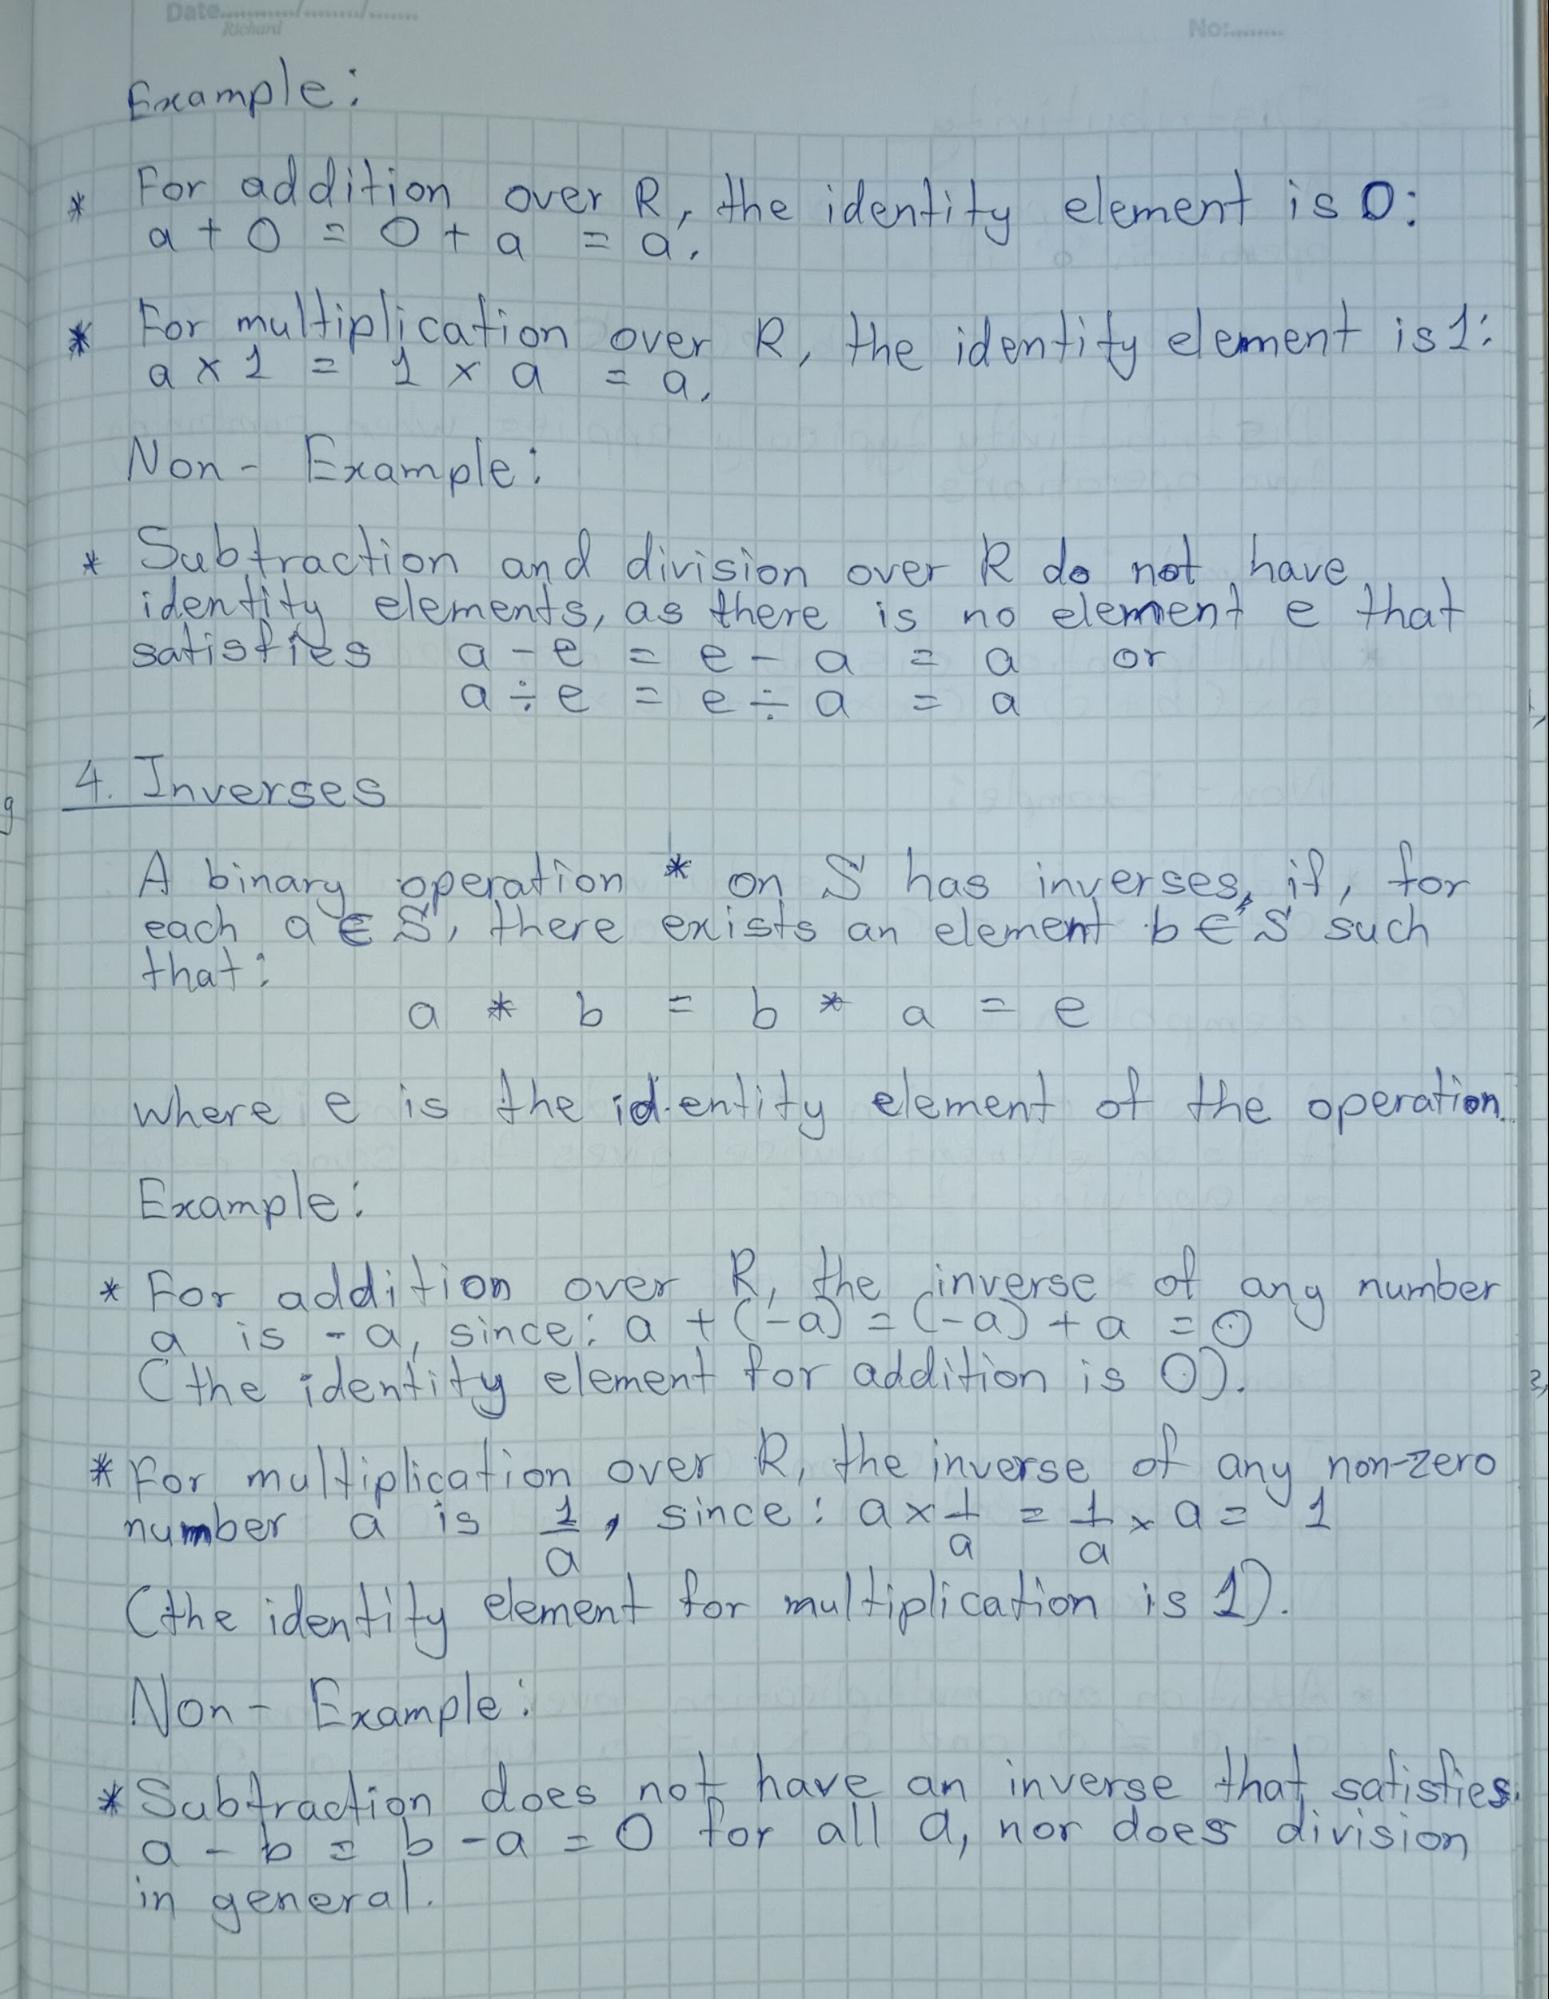 Date......./......./.......
Richard
No:........
Example:
* For addition over R, the identity element is 0:
a + 0 = 0 + a = a.
* For multiplication over R, the identity element is 1:
a × 1 = 1 × a = a.
Non-Example:
* Subtraction and division over R do not have
identity elements, as there is no element e that
satisfies a - e = e - a = a or
a ÷ e = e ÷ a = a
4. Inverses
A binary operation * on S has inverses, if, for
each a ∈ S, there exists an element b ∈ S such
that:
a * b = b * a = e
where e is the identity element of the operation.
Example:
* For addition over R, the inverse of any number
a is -a, since: a + (-a) = (-a) + a = 0
(the identity element for addition is 0).
* For multiplication over R, the inverse of any non-zero
number a is 1/a, since: a × 1/a = 1/a × a = 1
(the identity element for multiplication is 1).
Non-Example:
* Subtraction does not have an inverse that satisfies
a - b = b - a = 0 for all a, nor does division
in general.